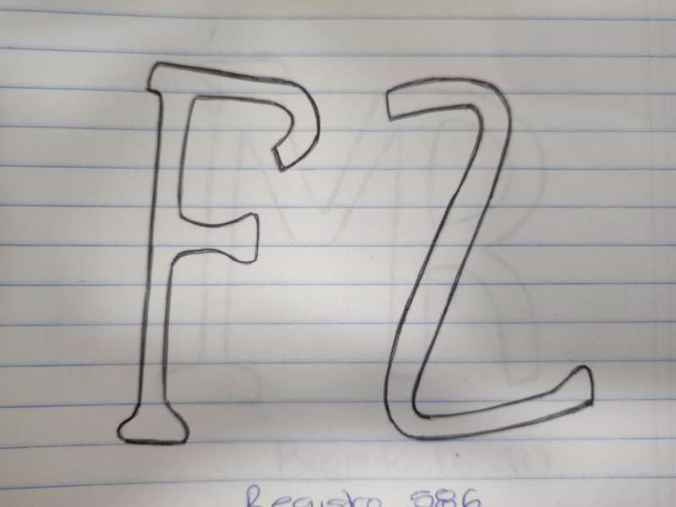 FZ
Registro 586